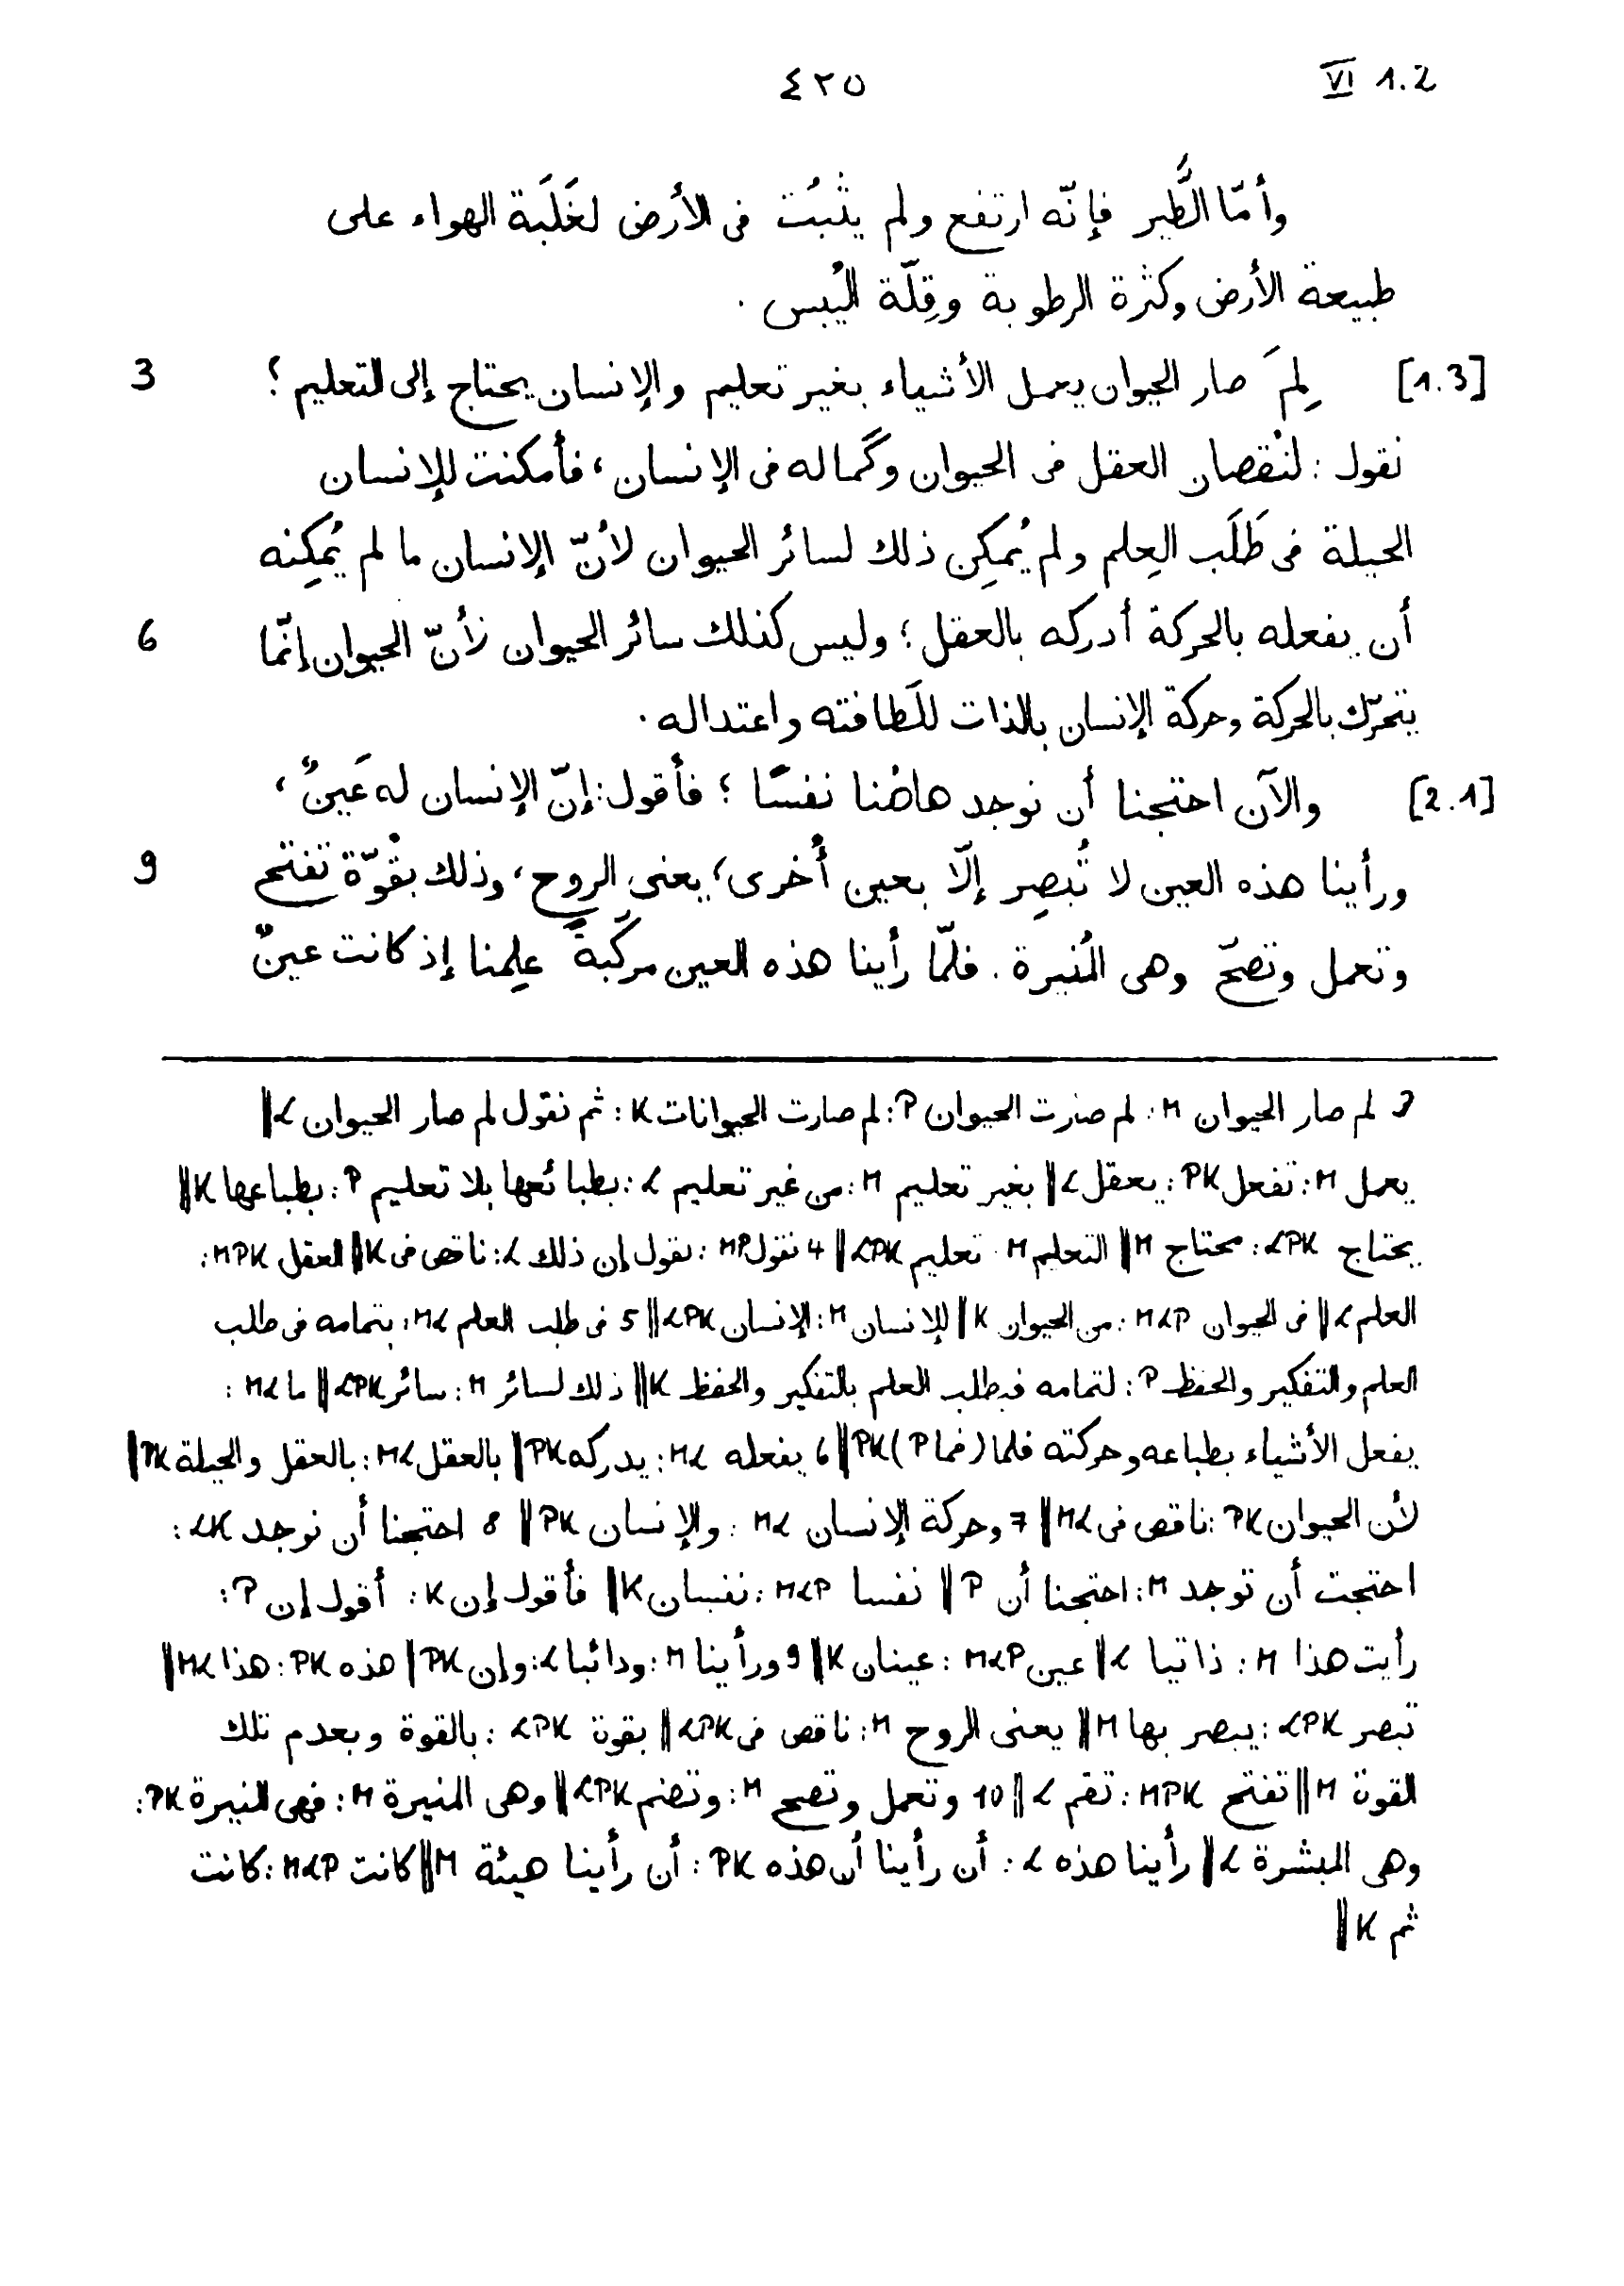 ٤٢٥ VI 1.2
وأمّا الطَّير فإنّه ارتفع ولم يثْبُت فى الأرض لغَلَبَة الهواء على
طبيعة الأرض وكثرة الرطوبة وقِلّة اليُبس .
[1.3] لِمَ صار الحيوان يعمل الأشياء بغير تعليم والإنسان يحتاج إلى التعليم ؟ 3
نقول : لنُقصان العقل فى الحيوان وكَماله فى الإنسان ، فأمكنت للإنسان
الحيلة فى طَلَب العِلم ولم يُمكِن ذلك لسائر الحيوان لأنّ الإنسان ما لم يُمكِنه
أن يفعله بالحركة أدركه بالعقل ؛ وليس كذلك سائر الحيوان لأنّ الحيوان إنّما 6
يتحرّك بالحركة وحركة الإنسان بالذات للَطافته واعتداله .
[2.1] والآن احتجنا أن نوجد هاهُنا نفسًا ؛ فأقول : إنّ الإنسان له عَينٌ ،
ورأينا هذه العين لا تُبصِر إلّا بعين أُخرى ، يعنى الروح ، وذلك بقُوّة تفتح 9
وتعمل وتصحّ وهى المُنيرة . فلمّا رأينا هذه العين مركَّبةً علِمنا إذ كانت عينٌ
3 لم صار الحيوان M : لم صارت الحيوان P : لم صارت الحيوانات K : ثم نقول لم صار الحيوان L ||
يعمل M : تفعل PK : يعقل L || بغير تعليم M : من غير تعليم L : بطبائعها بلا تعليم P : بطباعها K ||
يحتاج LPK : محتاج M || التعليم M : تعليم LPK || 4 نقول MP : نقول إن ذلك L : ناقص فى K || العقل MPK :
العلم L || فى الحيوان MLP : من الحيوان K || للإنسان M : الإنسان LPK || 5 فى طلب العلم ML : بتمامه فى طلب
العلم والتفكير والحفظ P : لتمامه فبطلب العلم بالتفكير والحفظ K || ذلك لسائر M : سائر LPK || ما ML :
يفعل الأشياء بطباعه وحركته فلما (فما P) PK || 6 يفعله ML : يدركه PK || بالعقل ML : بالعقل والحيلة PK ||
لأن الحيوان PK : ناقص فى ML || 7 وحركة الإنسان ML : والإنسان PK || 8 احتجنا أن نوجد LK :
احتجت أن توجد M : احتجنا أن P || نفسا MLP : نفسان K || فأقول إن K : أقول إن P :
رأيت هذا M : ذاتيا L || عين MLP : عينان K || 9 ورأينا M : ودائبا L : وإن PK || هذه PK : هذا ML ||
تبصر LPK : يبصر بها M || يعنى الروح M : ناقص فى LPK || بقوة LPK : بالقوة وبعدم تلك
القوة M || تفتح MPK : تقم L || 10 وتعمل وتصح M : وتضم LPK || وهى المنيرة M : فهى المنيرة PK :
وهى المبشرة L || رأينا هذه L : أن رأينا أن هذه PK : أن رأينا هيئة M || كانت MLP : كانت
ثم K ||